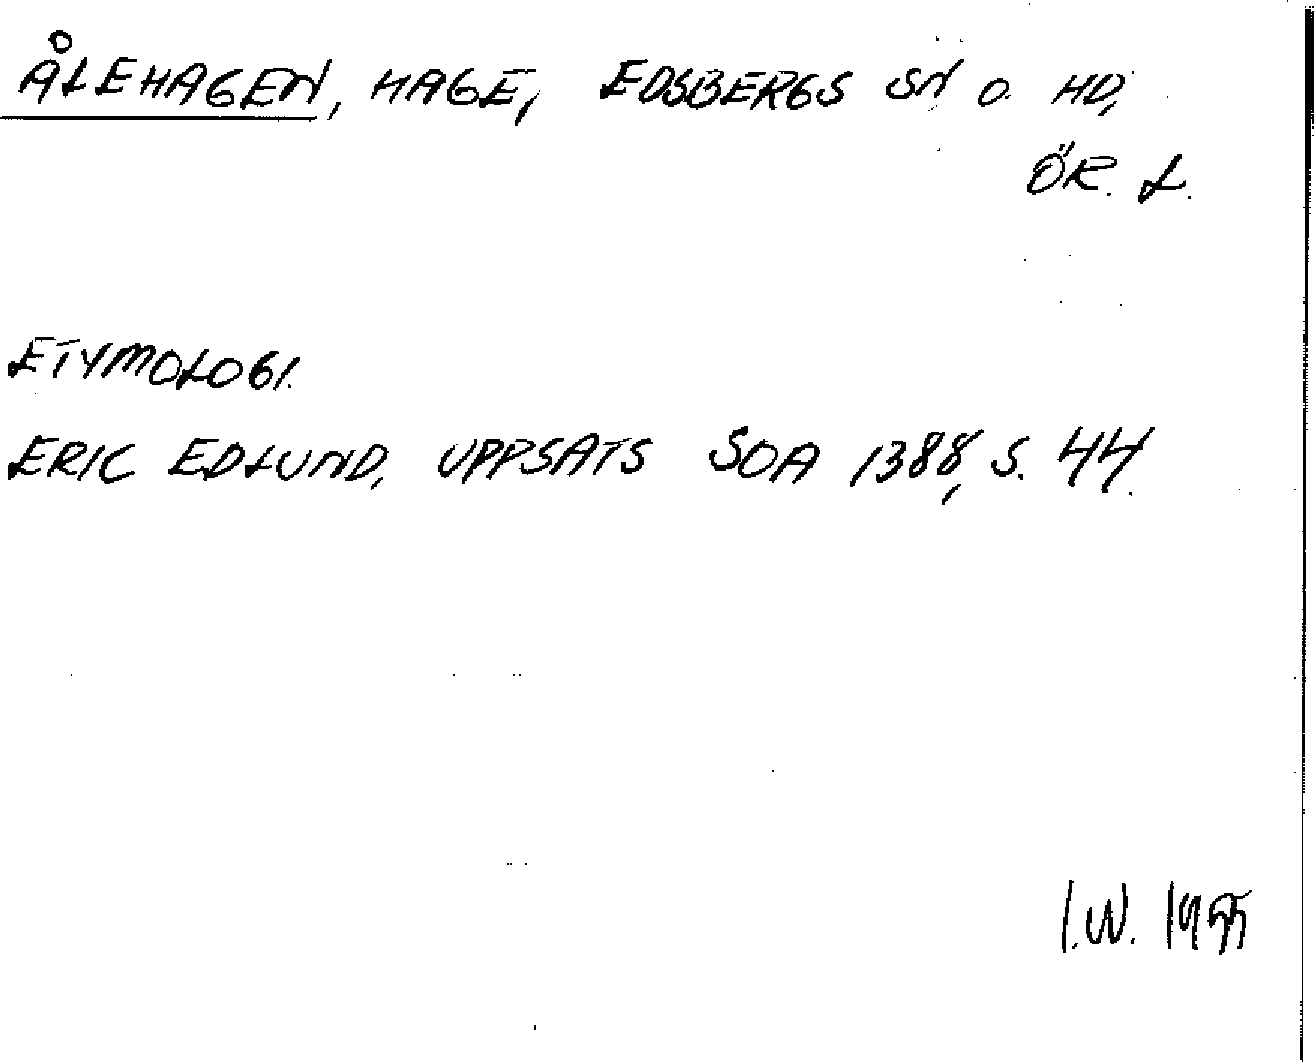 ÅLEHAGEN, HAGE, EDSBERGS SN O. HD,
ÖR. L.
ETYMOLOGI.
ERIC EDLUND, UPPSATS SOA 1388, S. 44.
I.W.